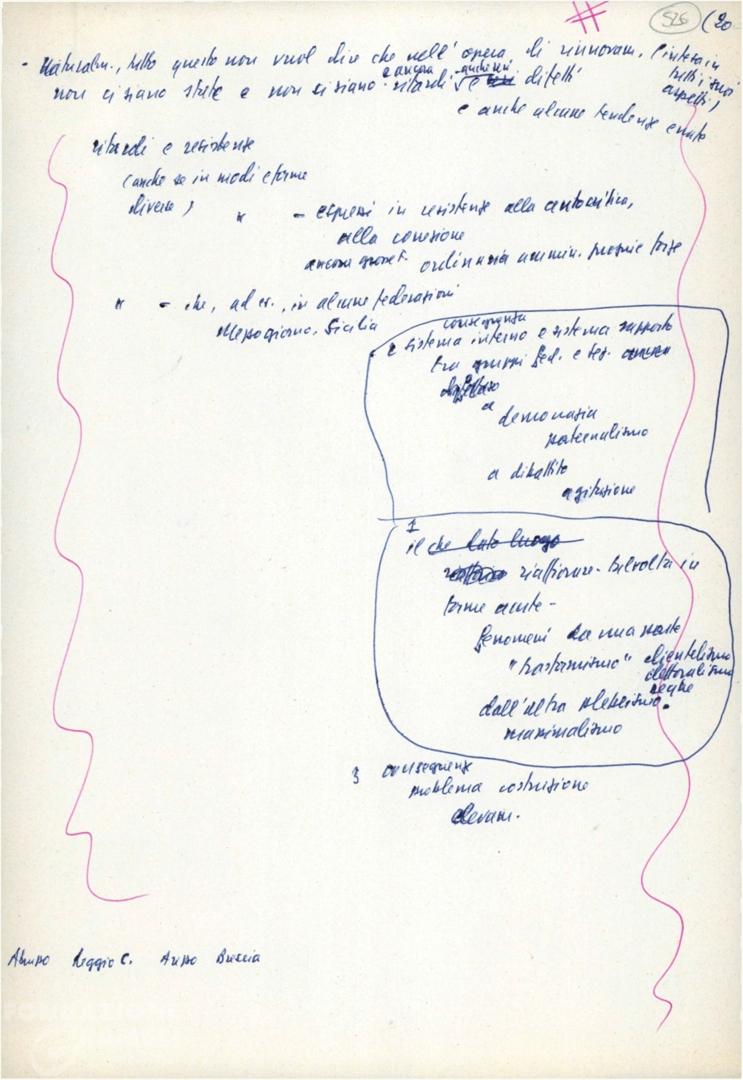 # 526 (20
- Naturalm., tutto questo non vuol dire che nell'opera di rinnovam. (inteso in
tutti i suoi
aspetti)
e ancora anche seri
non ci siano state e non ci siano ritardi e difetti
e anche alcune tendenze errate
ritardi e resistenze
(anche se in modi e forme
diverse)
- espressi in resistenze alla autocritica,
alla coesione
ordinaria ammin. proprie forze
- che, ad es., in alcune federazioni
Mezzogiorno, Sicilia
conseguenza
e sistema interno e sistema rapporto
tra gruppi fed. e seg.
a
democrazia
paternalismo
a dibattito
agitazione
1
il che dato luogo
riaffiorare - talvolta in
forme acute -
fenomeni da una parte
"trasformismo" clientelismo
elettoralismo
dall'altra plebeismo.
massimalismo
3 conseguenze
problema costruzione
elevam.
Abruzzo Reggio C. Arezzo Brescia
FONDAZIONE